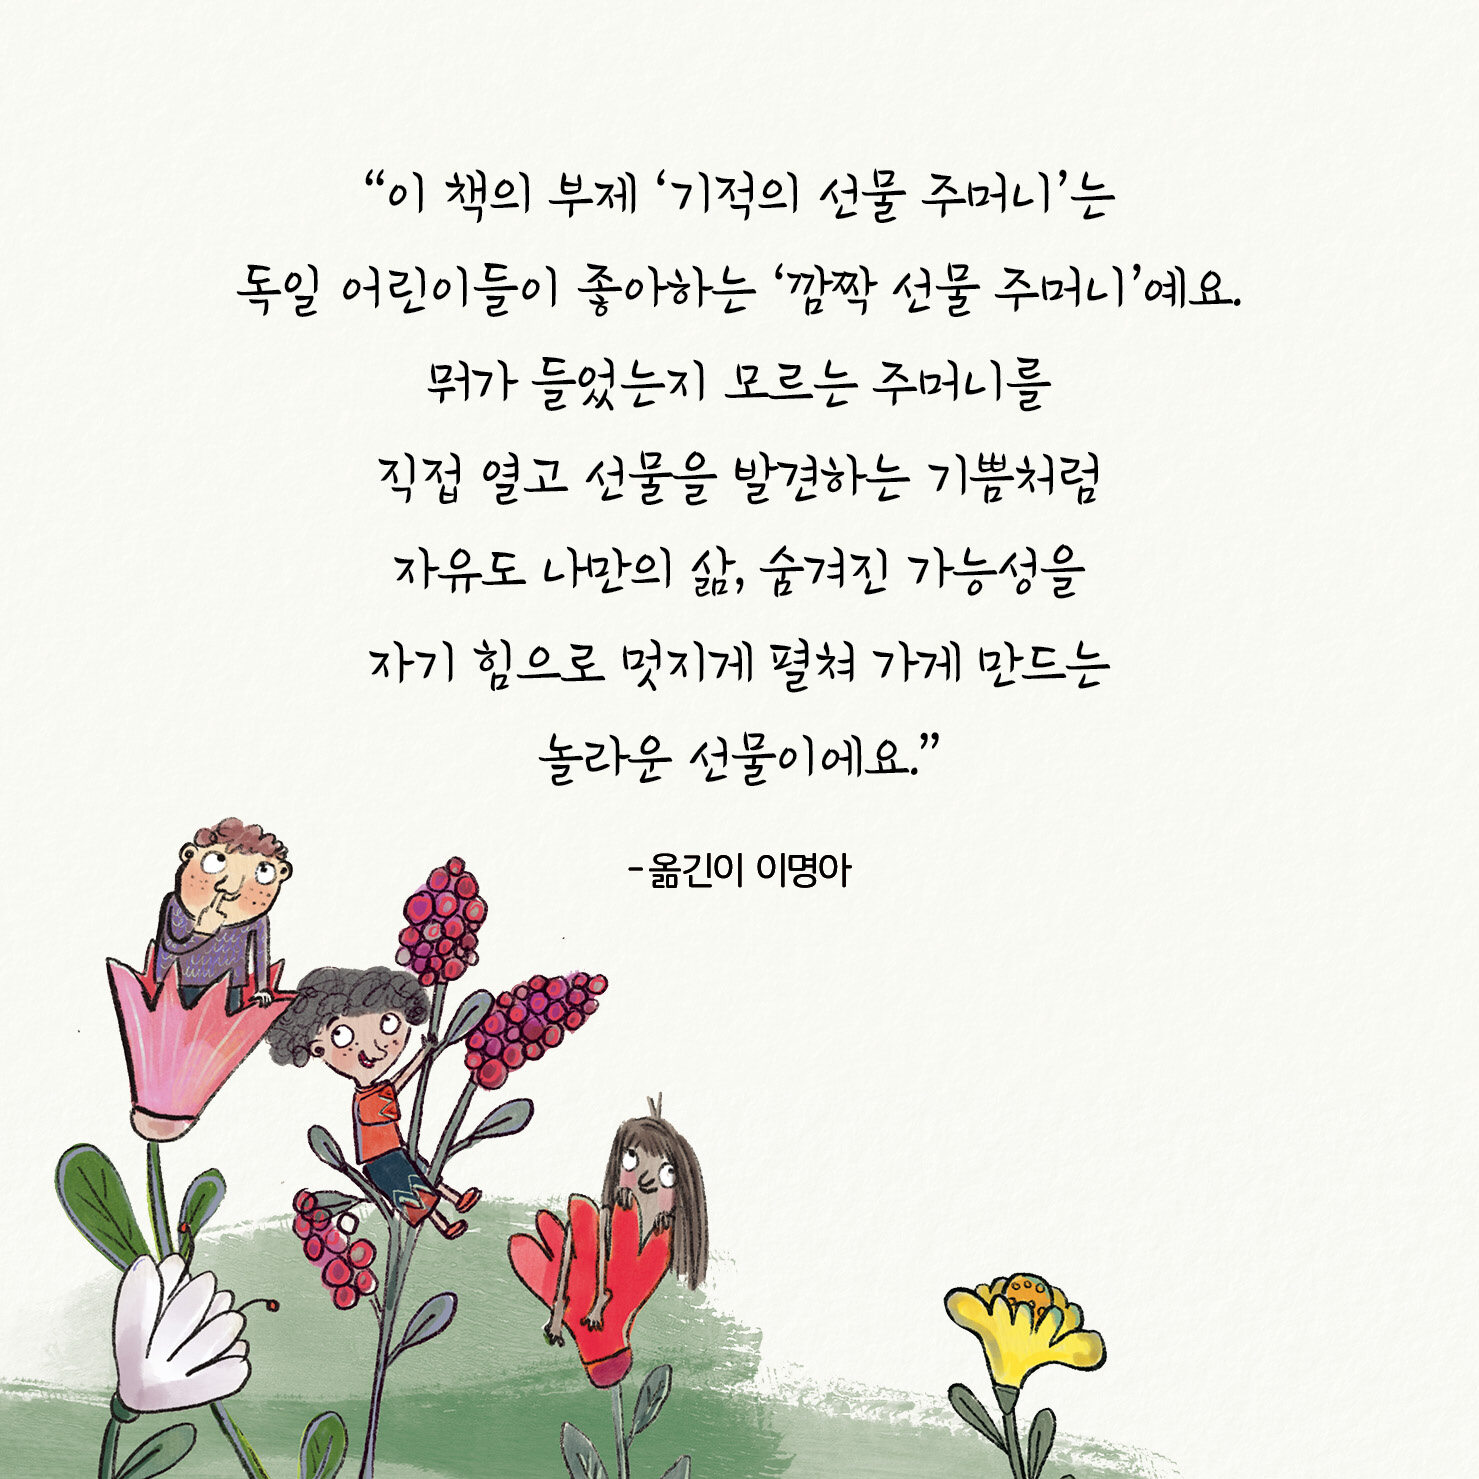 “이 책의 부제 ‘기적의 선물 주머니’는
독일 어린이들이 좋아하는 ‘깜짝 선물 주머니’예요.
뭐가 들었는지 모르는 주머니를
직접 열고 선물을 발견하는 기쁨처럼
자유도 나만의 삶, 숨겨진 가능성을
자기 힘으로 멋지게 펼쳐 가게 만드는
놀라운 선물이에요.”
-옮긴이 이명아